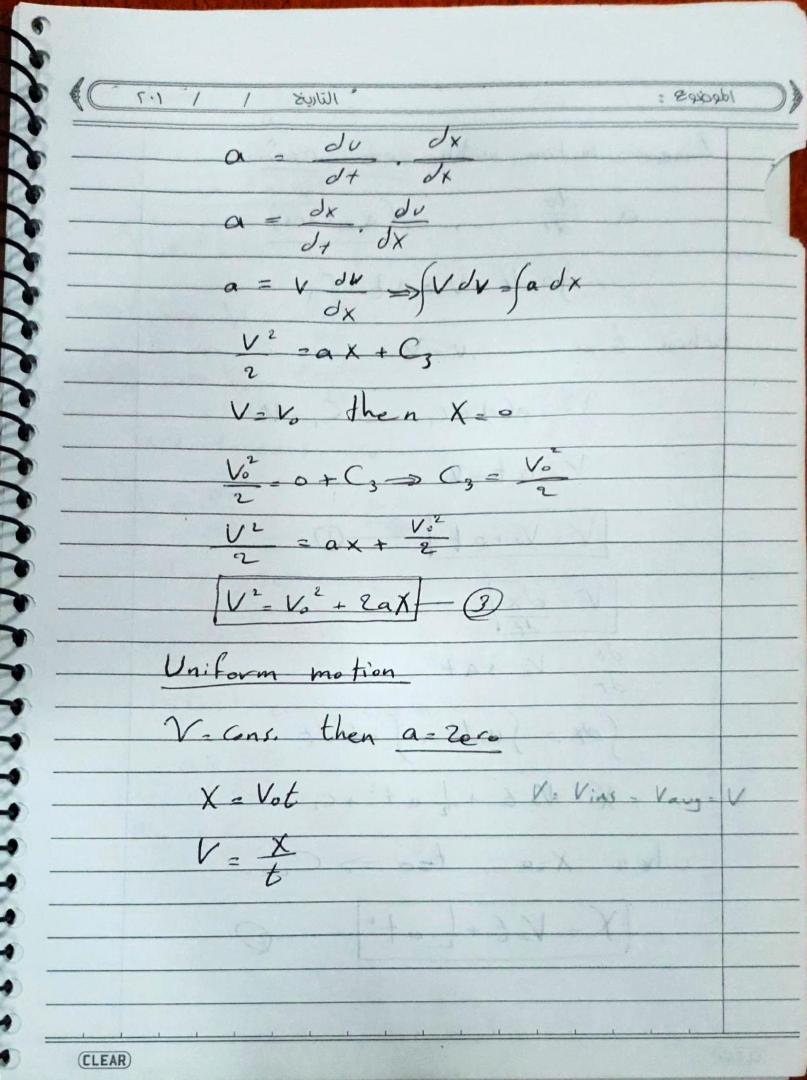 الموضوع : التاريخ / / ٢٠١
a = du/dt . dx/dx
a = dx/dt . du/dx
a = v dv/dx ⇒ ∫V dv = ∫a dx
V²/2 = a x + C₃
V = V₀ then X = 0
V₀²/2 = 0 + C₃ ⇒ C₃ = V₀²/2
V²/2 = ax + V₀²/2
V² = V₀² + 2aX — ③
Uniform motion
V = Cons. then a = Zero
X = V₀t V₀ = Vins = Vavg = V
V = X/t
CLEAR